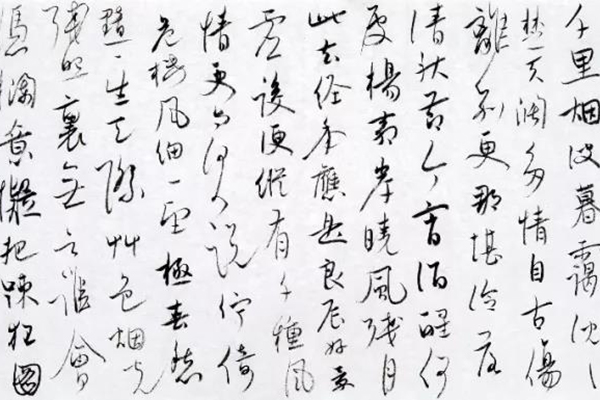 千里烟波暮靄沈〻
楚天闊多情自古傷
離別更那堪冷落
清秋節今宵酒醒何
處楊柳岸曉風殘月
此去經年應是良辰好景
虛設便縱有千種風
情更與何人說佇倚
危樓風細〻望極春愁
黯〻生天際艸色烟光
殘照裏無言誰會
憑闌意擬把疎狂圖